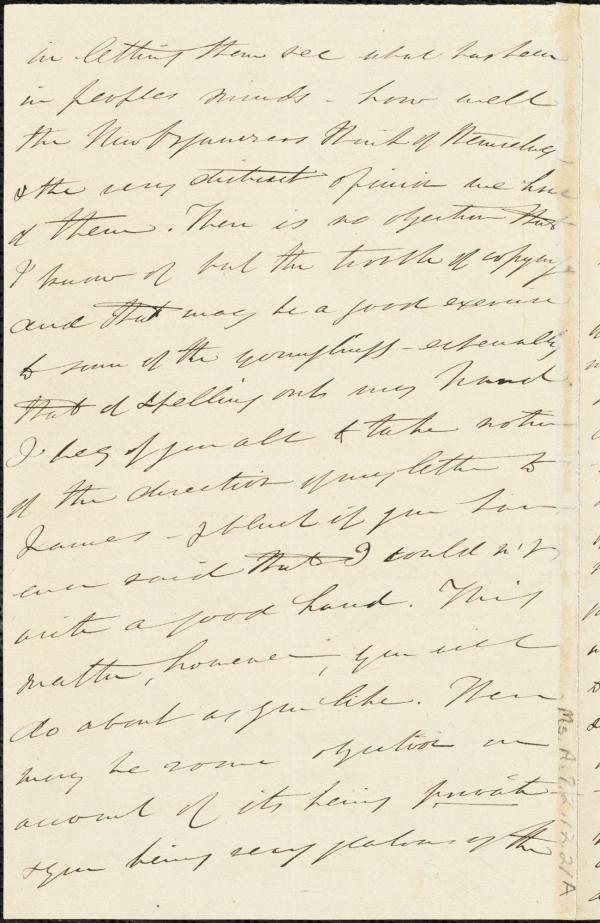 in letting them see what has been
in peoples minds - how well
the New Organizers think of themselves,
& the very distinct opinion we have
of them. There is no objection that
I know of but the trouble of copying
and that may be a good exercise
to some of the younglings - especially
that of spelling out my hand
I beg of you all to take notice
of the direction of my letter to
James - & blush if you have
ever said that I could n't
write a good hand. This
matter, however, you will
do about as you like. There
may be some objection on
account of its being private -
& you being very jealous of the
Ms. A. 9. 2. 12. 21 A